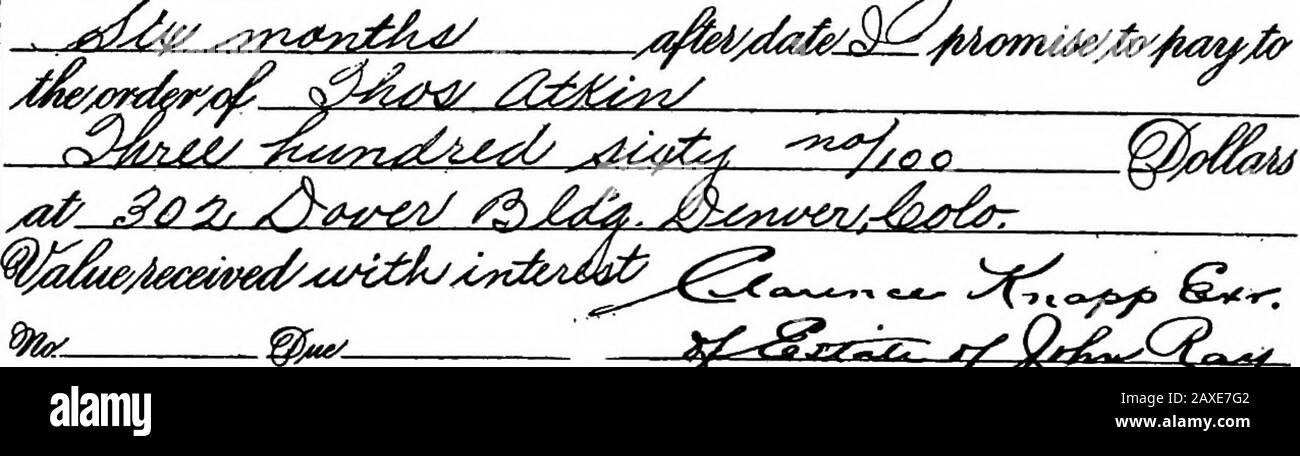 Six months after date I promise to pay to
the order of Thos Atkin
Three hundred sixty no/100 Dollars
at 302 Dover Bldg. Denver, Colo.
Value received with interest Clarence Knapp Exr.
No. Due of Estate of John Ray
alamy
Image ID: 2AXE7G2
www.alamy.com